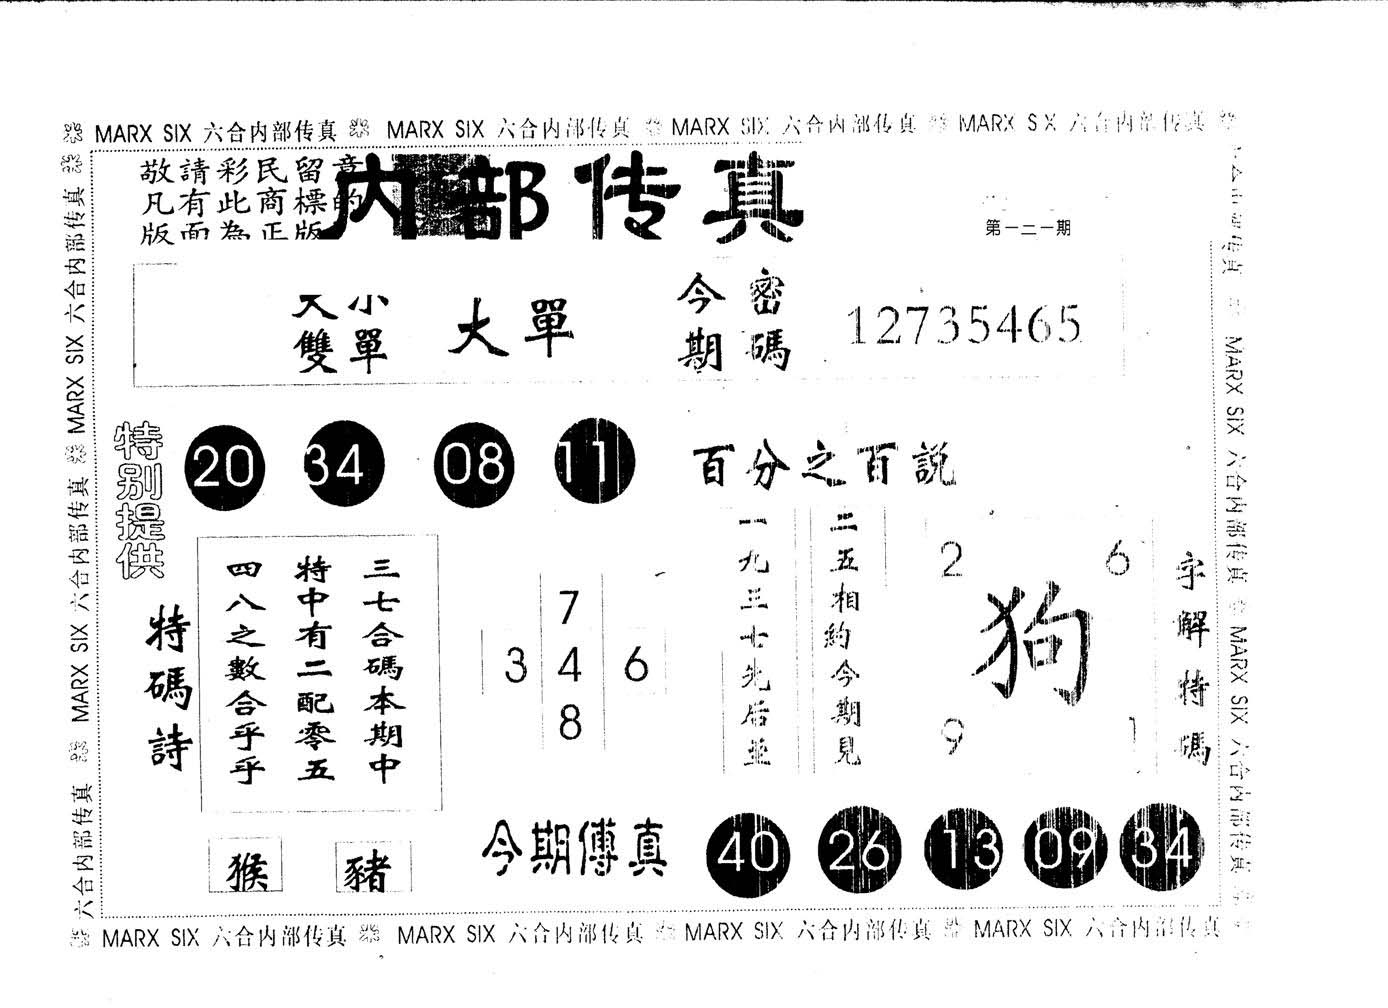 MARX SIX 六合内部传真 MARX SIX 六合内部传真 MARX SIX 六合内部传真 MARX SIX 六合内部传真
敬請彩民留意
凡有此商標的
版面為正版
内部传真
第一二一期
大小
雙單
大單
今期
密碼
12735465
特别提供
20 34 08 11
百分之百説
特碼詩
三七合碼本期中
特中有二配零五
四八之數合乎乎
7
3 4 6
8
二五相約今期見
一九三七先后並
2 6
狗
9 1
字解特碼
猴 豬
今期傳真
40 26 13 09 34
MARX SIX 六合内部传真 MARX SIX 六合内部传真 MARX SIX 六合内部传真 MARX SIX 六合内部传真
六合内部传真 MARX SIX 六合内部传真 MARX SIX 六合内部传真 MARX SIX 六合内部传真
MARX SIX 六合内部传真 MARX SIX 六合内部传真